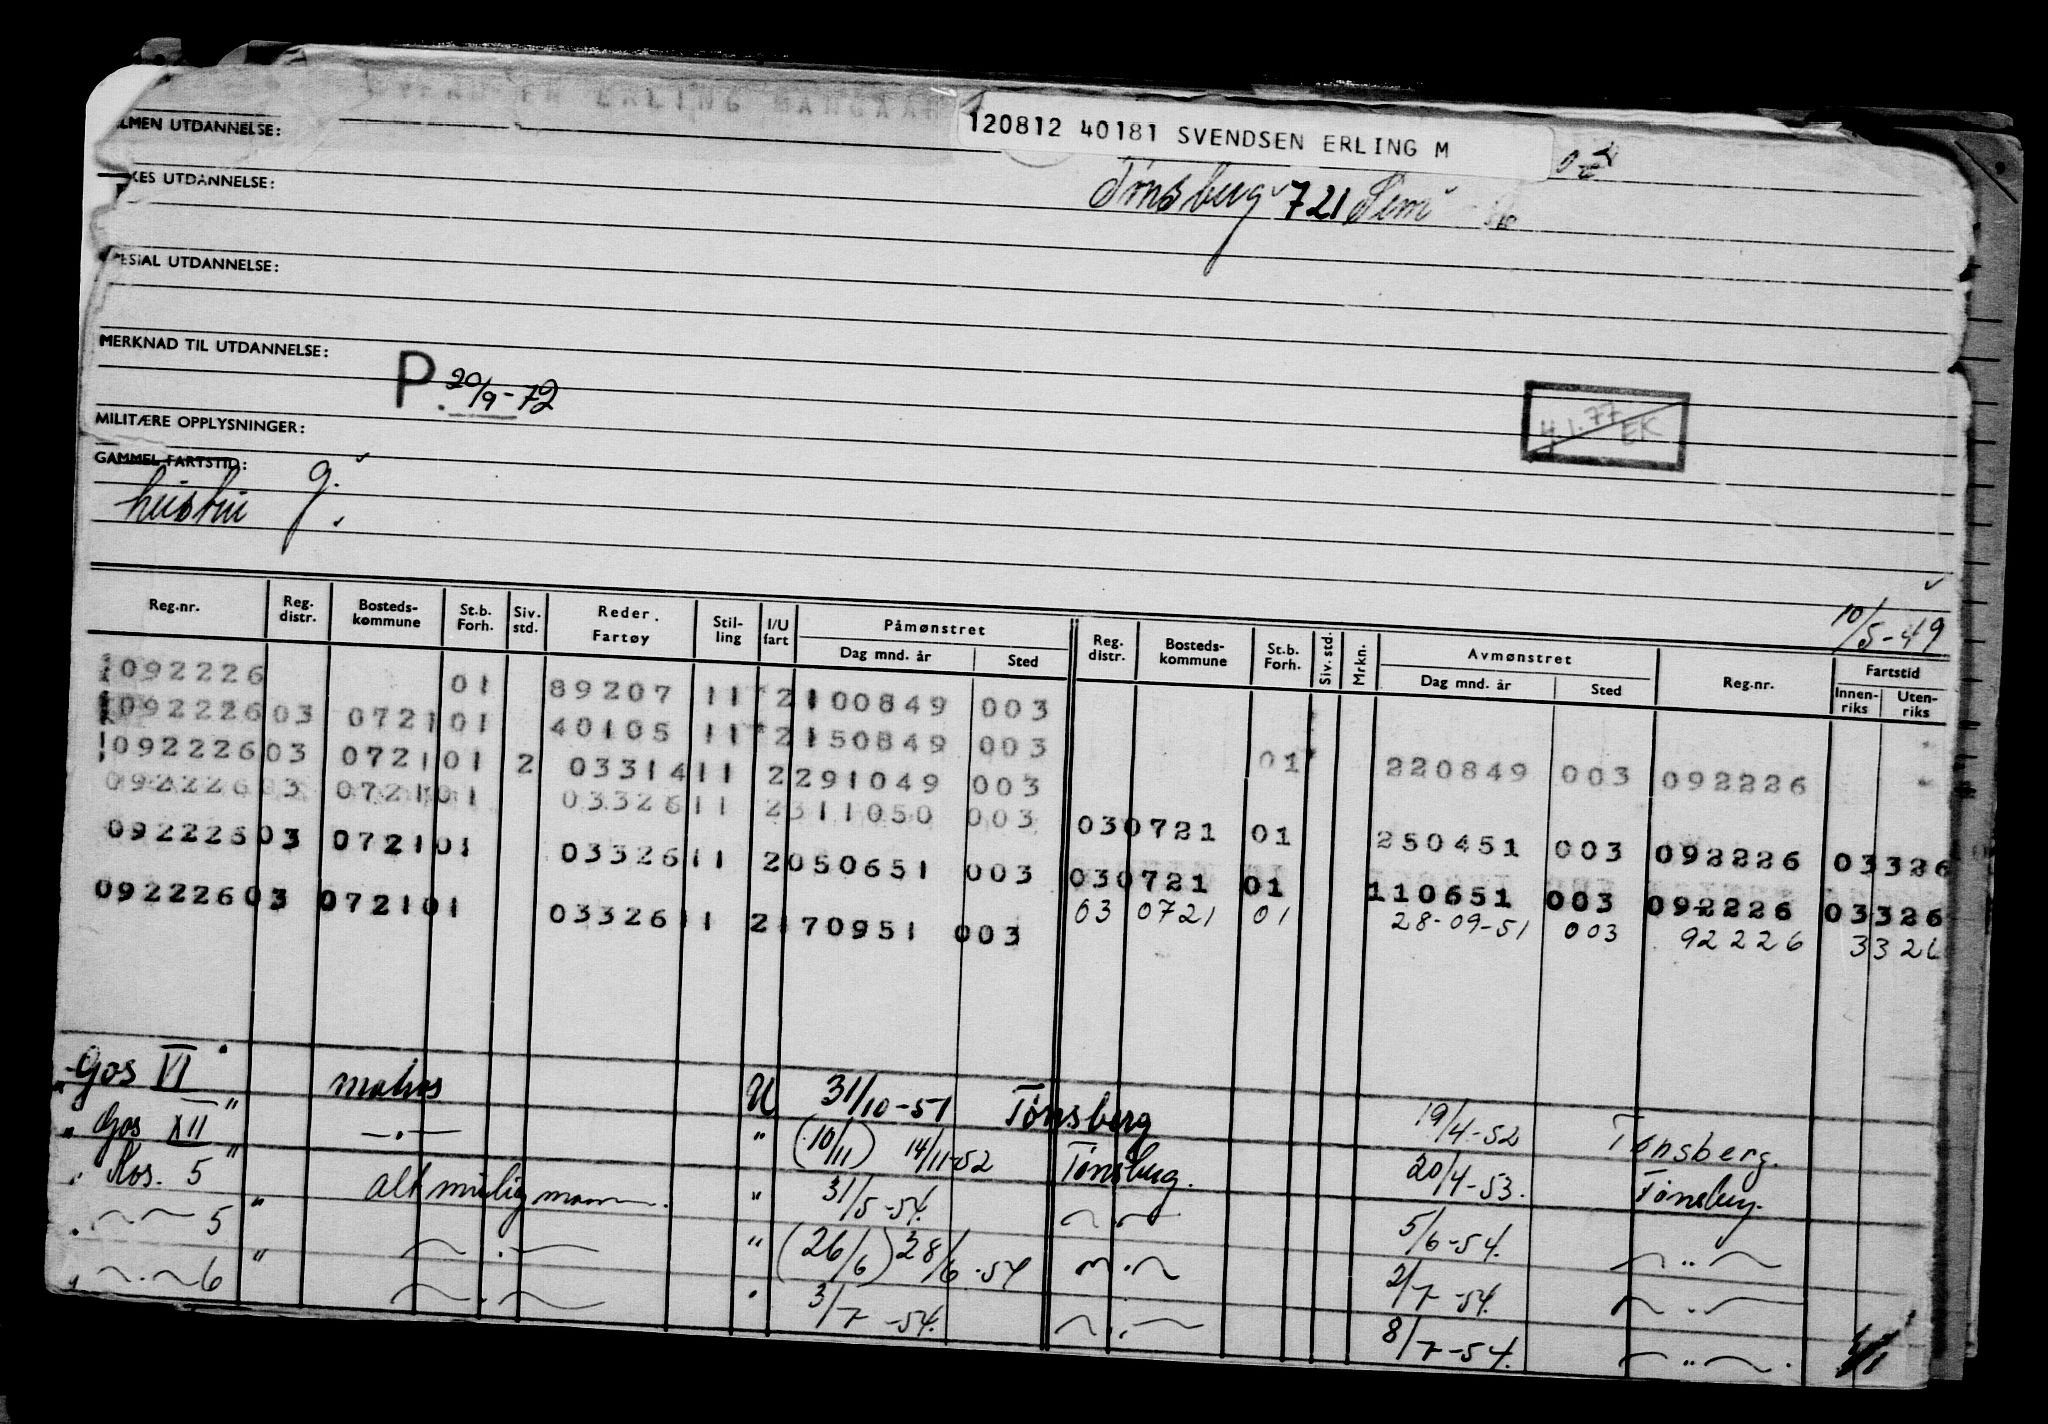 120812 40181 SVENDSEN ERLING M
LMEN UTDANNELSE:
Tønsberg 721 Sem
KES UTDANNELSE:
ESIAL UTDANNELSE:
MERKNAD TIL UTDANNELSE:
P. 20/9-72
4.1.77 EK
MILITÆRE OPPLYSNINGER:
GAMMEL FARTSTID:
hustru G.
10/5-49
Reg.nr. Reg. distr. Bosteds-kommune St.b. Forh. Siv. std. Reder. Fartøy Stil-ling I/U fart Påmønstret Dag mnd. år Sted Reg. distr. Bosteds-kommune St.b. Forh. Siv. std. Mrkn. Avmønstret Dag mnd. år Sted Reg.nr. Fartstid Innen-riks Uten-riks
092226 01 89207 11 2 100849 003
092226 03 0721 01 40105 11 2 150849 003 01 220849 003 092226
092226 03 0721 01 2 03314 11 2 291049 003
092226 03 0721 01 03326 11 2 311050 003 03 0721 01 250451 003 092226 03326
092226 03 0721 01 03326 11 2 050651 003 03 0721 01 110651 003 092226 03326
092226 03 0721 01 03326 11 2 170951 003 03 0721 01 28-09-51 003 92226 3326
"Gos VI" matros U 31/10-51 Tønsberg 19/4-52 Tønsberg.
"Gos XII" —.— " (10/11) 14/11-52 Tønsberg. 20/4-53. Tønsberg.
" Kos. 5 " altmuligmann. " 31/5-54. —"— 5/6-54. —"—
" —"— 5 " —.— " (26/6) 28/6-54 —.— 2/7-54. —.—
" —.— 6 —.— " 3/7-54. —.— 8/7-54. —"—.